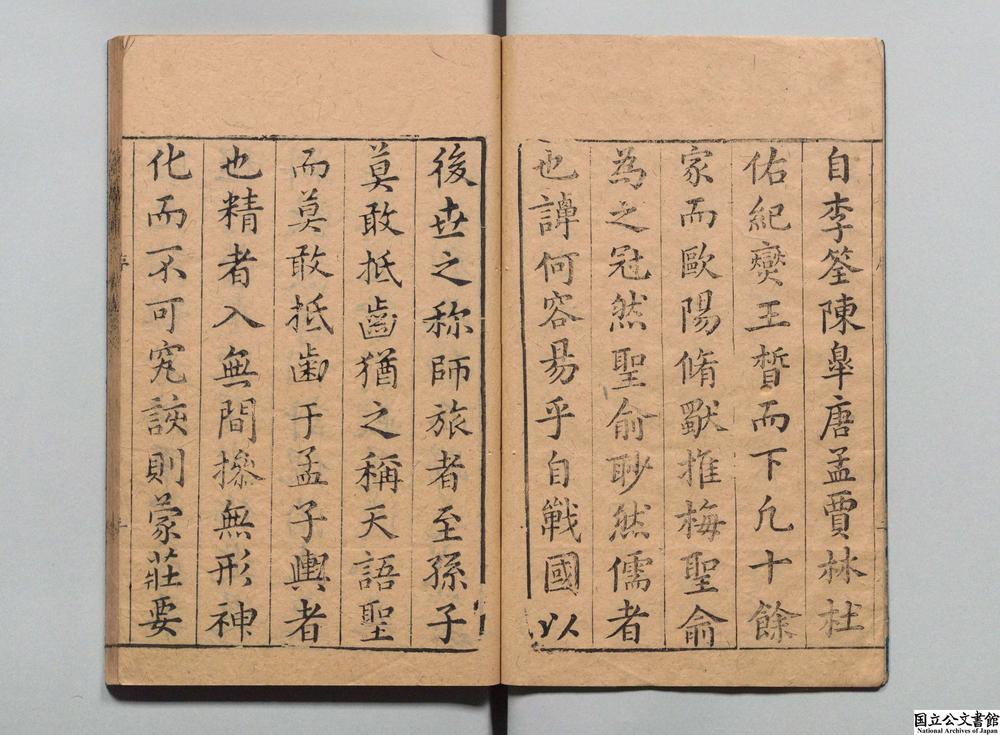 自李筌陳皐唐孟賈林杜
佑紀燮王晳而下凢十餘
家而歐陽脩獸推梅聖俞
為之冠然聖俞眇然儒者
也譚何容昜乎自戰國以
後世之称師旅者至孫子
莫敢抵齒猶之稱天語聖
而莫敢抵齒于孟子輿者
也精者入無間摻無形神
化而不可䆒詼則蒙莊要
国立公文書館
National Archives of Japan